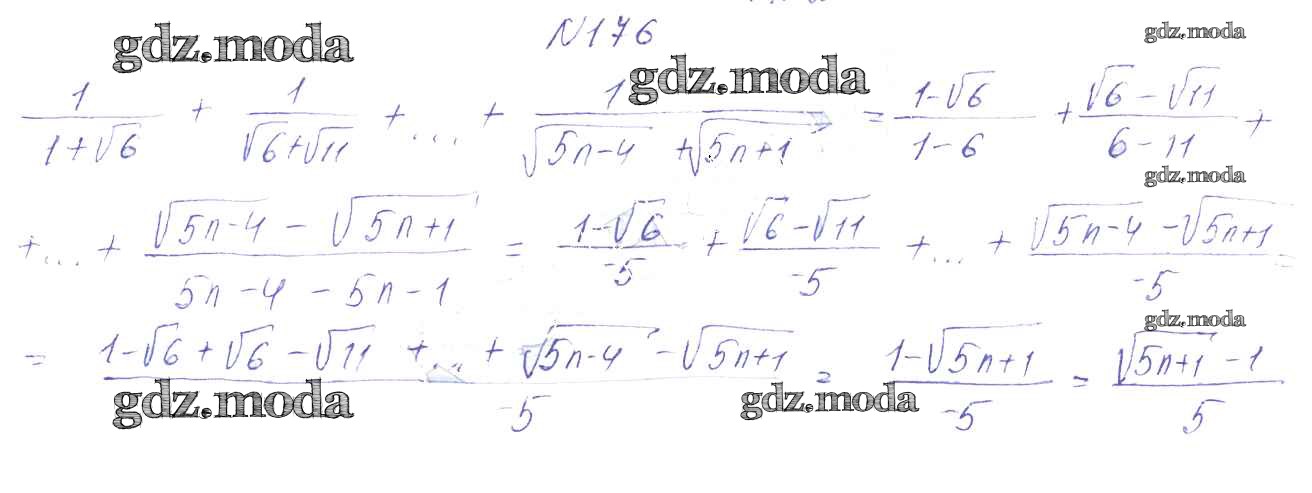 N176
gdz.moda gdz.moda gdz.moda
1/(1+√6) + 1/(√6+√11) + ... + 1/(√(5n-4) + √(5n+1)) = (1-√6)/(1-6) + (√6-√11)/(6-11) +
gdz.moda
+ ... + (√(5n-4) - √(5n+1))/(5n-4-5n-1) = (1-√6)/(-5) + (√6-√11)/(-5) + ... + (√(5n-4) - √(5n+1))/(-5) =
gdz.moda
= (1-√6+√6-√11+...+√(5n-4) - √(5n+1))/(-5) = (1-√(5n+1))/(-5) = (√(5n+1) - 1)/5
gdz.moda gdz.moda